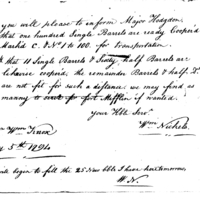 you will please to inform Major Hodgdon
that one hundred Single Barrels are ready Cooper'd
Marked C. & No 1 to 100. for transportation
that 11 Single Barrels & Sixty half Barrels are
likewise cooper'd the remainder Barrels & half
are not fit for such a distance. we may find as
many to Mifflin if wanted.
Your Hble Servt
Wm Nichols
5th 1794
begun to fill the 25 New bbls I have
W. N.